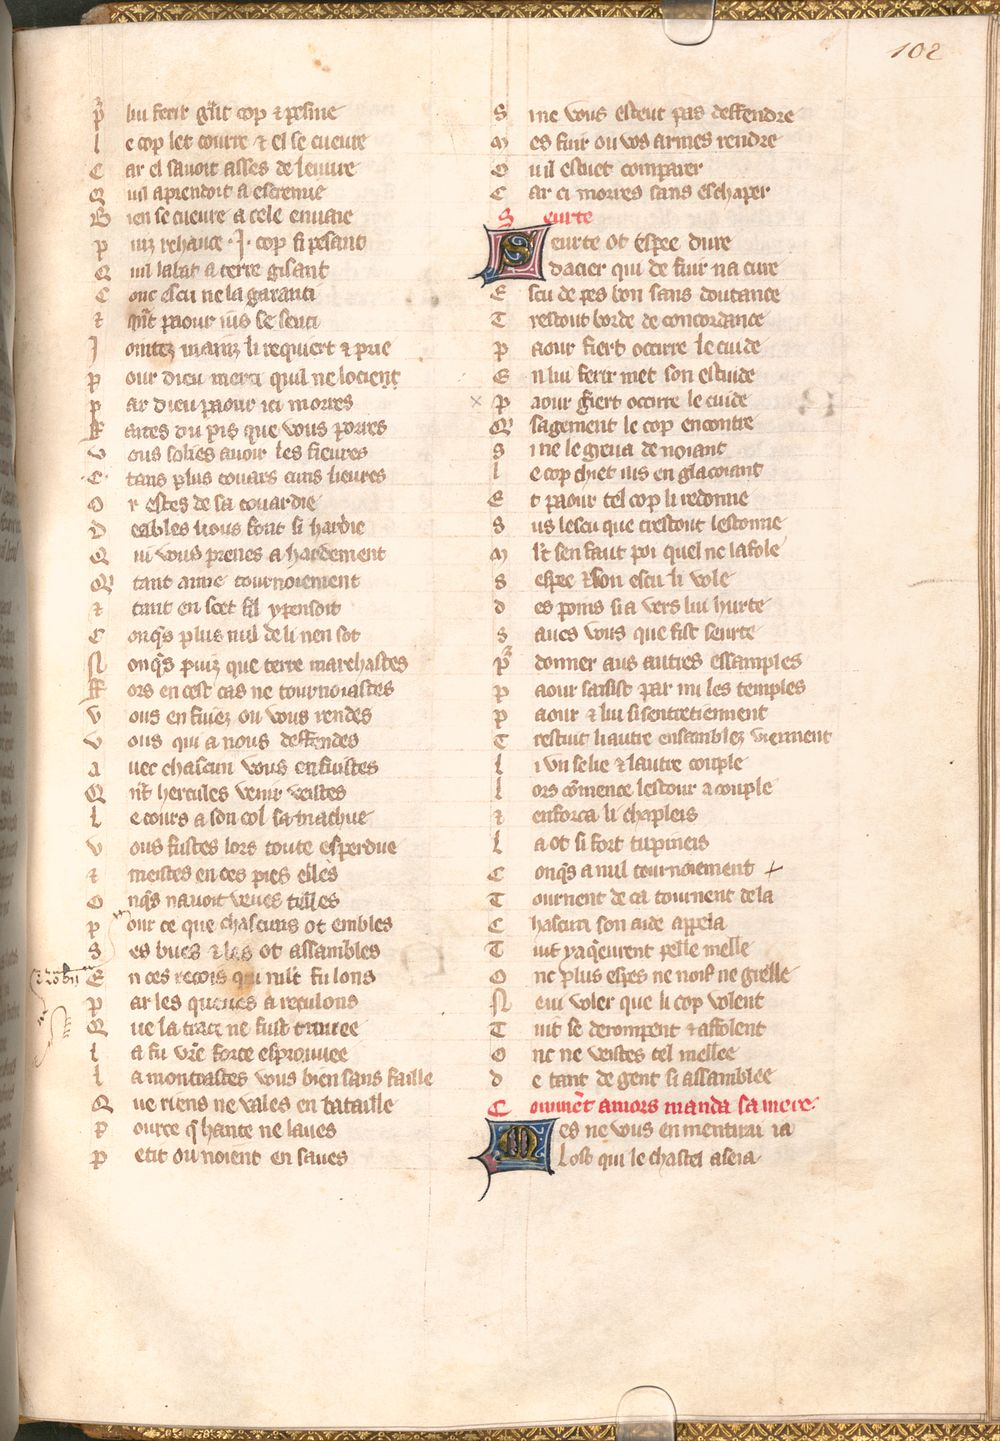 102
P̃ lui ferir grãt cop & pesme
L e cop let courre & el se cueure
C ar el savoit asses de leuure
Q uil aprendoit a escremie
B ien se cueure a cele envaie
P uiz rehauce .I. cop si pesant
Q uil labat a terre gisant
C onc escu ne la garanti
& q̃nt paour ius se senti
J ointez mainz li requiert & prie
P our dieu merci quil ne locient
P ar dieu paour ici morres
F aites du pis que vous porres
V ous solies avoir les fieures
C tans plus couars cuns lieures
O r estes de sa couardie
D eables vous font si hardie
Q ui vous prenes a hardement
Q tant aime tournoiement
& tant en scet sil y pensoit
C onq̃s plus nul de li nen sot
N onq̃s puiz que terre marchastes
F ors en cest cas ne tournoiastes
V ous en fuiez ou vous rendes
V ous qui a nous deffendes
A uec chascun vous enfuistes
Q nt̃ hercules venir veistes
L e cours a son col sa machue
V ous fustes lors toute esperdue
& meistes en ces pies elles
O nq̃s navoit veues telles
P our ce que chascuns ot embles
S es bues & les ot assambles
E n ces recois qui mlt fu lons
P ar les queues a reculons
Q ue la trace ne fust trouuee
L a fu vr̃e force esprouuee
L a montrastes vous bien sans faille
Q ue riens ne vales en bataille
P ource q̃ hante ne laues
P etit ou noient en saues
S i ne vous esteut pas deffendre
M es fuir ou vos armes rendre
O u il estuet comparer
C ar ci morres sans eschaper
S eurte
S eurte ot espee dure
dacier qui de fuir na cure
E scu de pes bon sans doutance
T restout borde de concordance
P aour fiert occirre le cuide
E n lui ferir met son estuide
P aour fiert occirre le cuide
Q sagement le cop encontre
S i ne le greva de noiant
L e cop chiet ius en glacoiant
E t paour tel cop li redonne
S us lescu que trestout lestonne
M lt sen faut poi quel ne lafole
S espee & son escu li vole
D es poins si a vers lui hurte
S aues vous que fist seurte
P̃ donner aus autres essamples
P aour saisist par mi les temples
P aour & lui si sentretiennent
T restuit li autre ensamblez viennent
L i un se lie & lautre couple
L ors cõmence lestour a couple
& enforca li chapleis
L a ot si fort tupineis
C onq̃s a nul tournoiement
T ournent de ca tournent dela
C hascun son aide appela
T uit y aq̃eurent pelle melle
O nc plus espes ne noif ne grelle
N eui voler que li cop volent
T uit se derompent & affolent
O nc ne veistes tel mellee
D e tant de gent si assamblee
C oumnẽt amors manda sa mere
M es ne vous en mentirai ia
Lost qui le chastel aseia